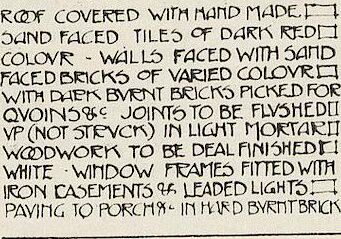 ROOF COVERED WITH HAND MADE
SAND FACED TILES OF DARK RED
COLOVR - WALLS FACED WITH SAND
FACED BRICKS OF VARIED COLOVR
WITH DARK BVRNT BRICKS PICKED FOR
QVOINS &c JOINTS TO BE FLVSHED
VP (NOT STRVCK) IN LIGHT MORTAR
WOODWORK TO BE DEAL FINISHED
WHITE · WINDOW FRAMES FITTED WITH
IRON CASEMENTS & LEADED LIGHTS
PAVING TO PORCH &c IN HARD BVRNT BRICK